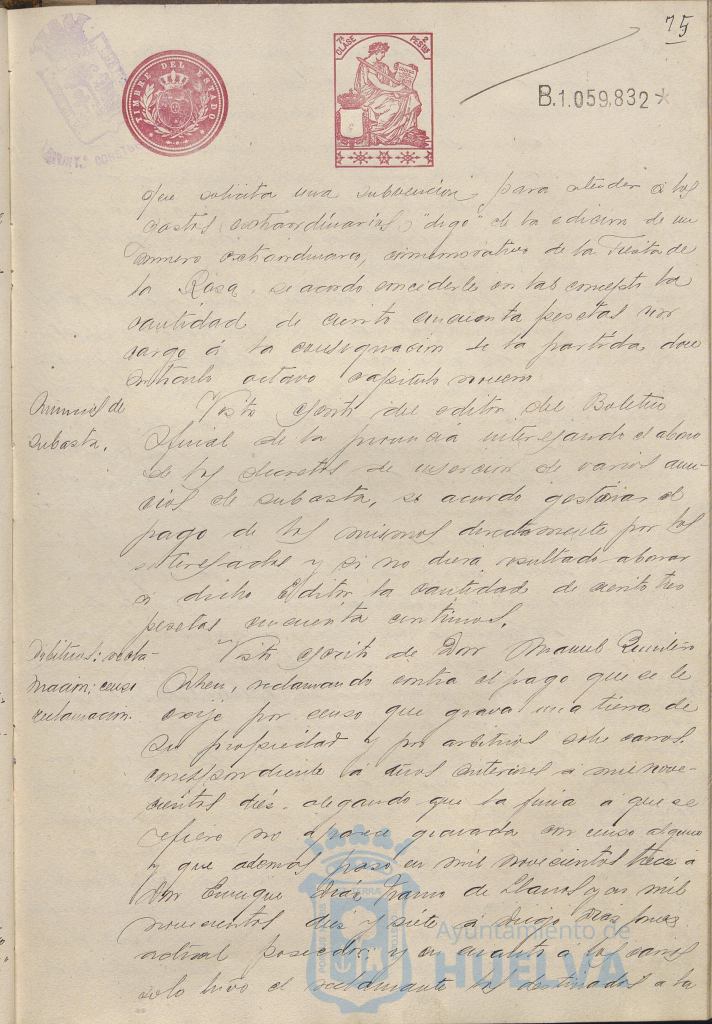 75
TIMBRE DEL ESTADO
7ª CLASE 2 PESETAS
B.1.059.832*
que solicita una subvencion para atender a los
gastos extraordinarios, "digo" de la edicion de un
número extraordinario, conmemorativo de la Fiesta de
la Rosa, se acordo concederle en tal concepto la
cantidad de ciento cincuenta pesetas con
cargo á la consignacion de la partida doce
articulo octavo capitulo noveno
Anuncios de
subasta.
Visto escrito del editor del Boletin
Oficial de la provincia interesando el abono
de los de insercion de varios anun-
cios de subasta, se acordo gestionar el
pago de los mismos directamente por los
interesados y si no diera resultado abonar
a dicho Editor la cantidad de ciento tres
pesetas cincuenta centimos.
Arbitrios: recla-
macion; censo
reclamacion.
Visto escrito de Don Manuel
reclamando contra el pago que se le
exije por censo que grava una tierra de
su propiedad y por arbitrios sobre carros,
correspondiente a años anteriores a mil nove-
cientos diez, alegando que la finca a que se
refiere no aparece gravada con censo alguno
y que además pasó en mil novecientos trece a
Don Enrique Diaz Franco de Llanos y en mil
novecientos diez y siete a Diego Diaz
actual poseedor y en cuanto a los carros
solo tuvo el reclamante los destinados a la
Ayuntamiento de
HUELVA